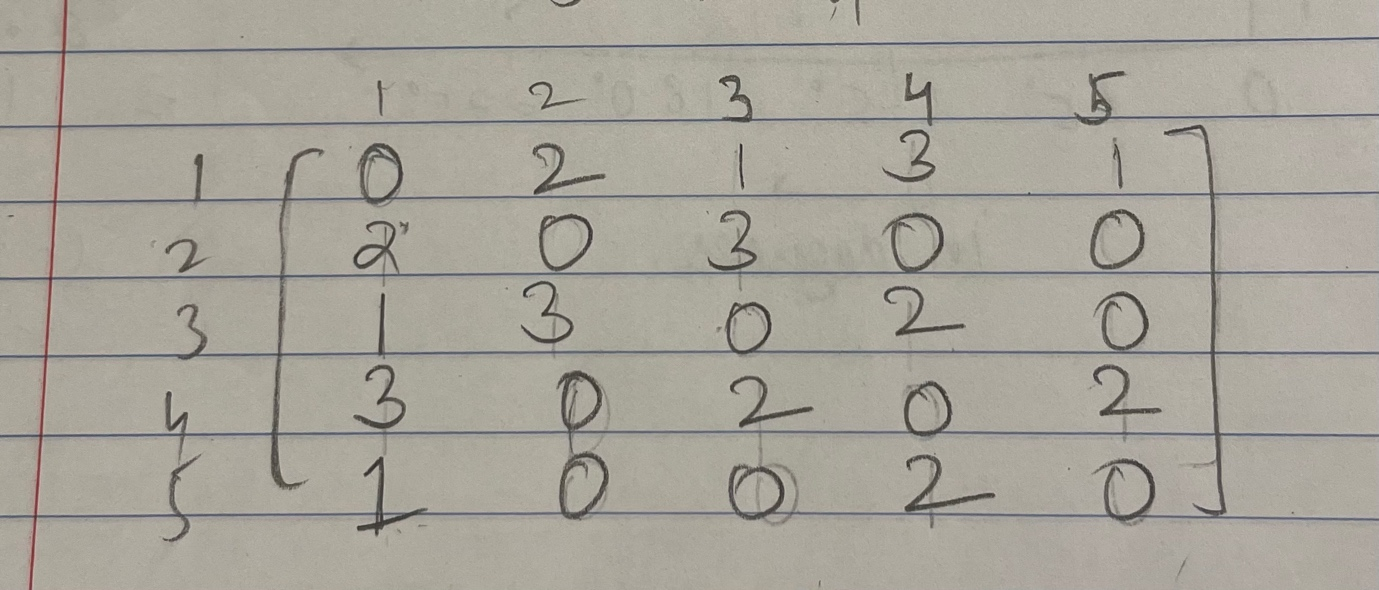 1 2 3 4 5
1 [ 0 2 1 3 1 ]
2 2 0 3 0 0
3 1 3 0 2 0
4 3 0 2 0 2
5 1 0 0 2 0